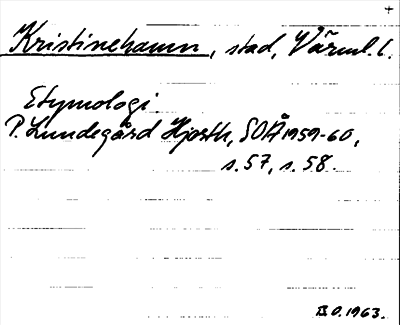 Kristinehamn, stad, Värml. l.
Etymologi.
P. Lundegård Hjorth, SOÅ 1959-60,
s. 57, s. 58.
II O. 1963.